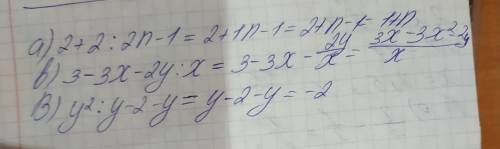 а) 2+2:2п-1=2+1п-1=2+п-1=1+п
в) 3-3x-2y:x=3-3x-2y/x=3x-3x²-2y/x
В) y²:y-2-y=y-2-y=-2